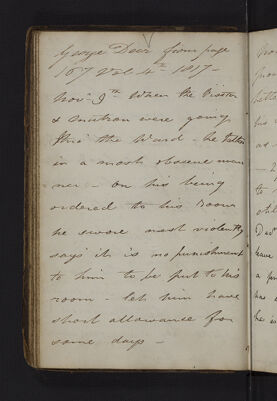 George Dear from page
167 Vol 4th 1817 -
Novr 9th When the Visitor
& were going
thro' the Ward - he talked
in a most obscene man
ner - on his being
ordered to his room
he swore most violently
says it is no punishment
to him to be put to his
room - let him have
short allowance for
some days -